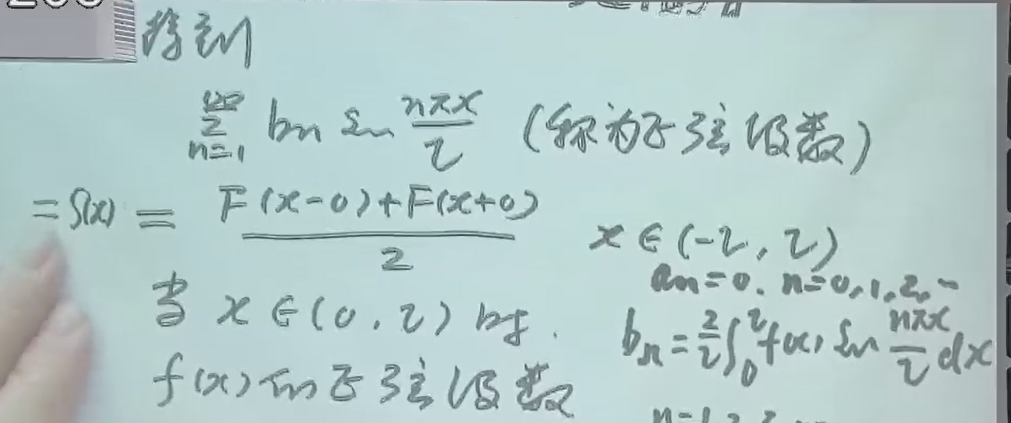 得到
\sum_{n=1}^{\infty} b_n \sin \frac{n\pi x}{l} (称为正弦级数)
= S(x) = \frac{F(x-0)+F(x+0)}{2} x∈(-l, l)
a_n=0. n=0,1,2,…
当 x∈(0, l) 时.
b_n = \frac{2}{l} \int_0^l f(x) \sin \frac{n\pi x}{l} dx
f(x) 的正弦级数
n=1,2,3